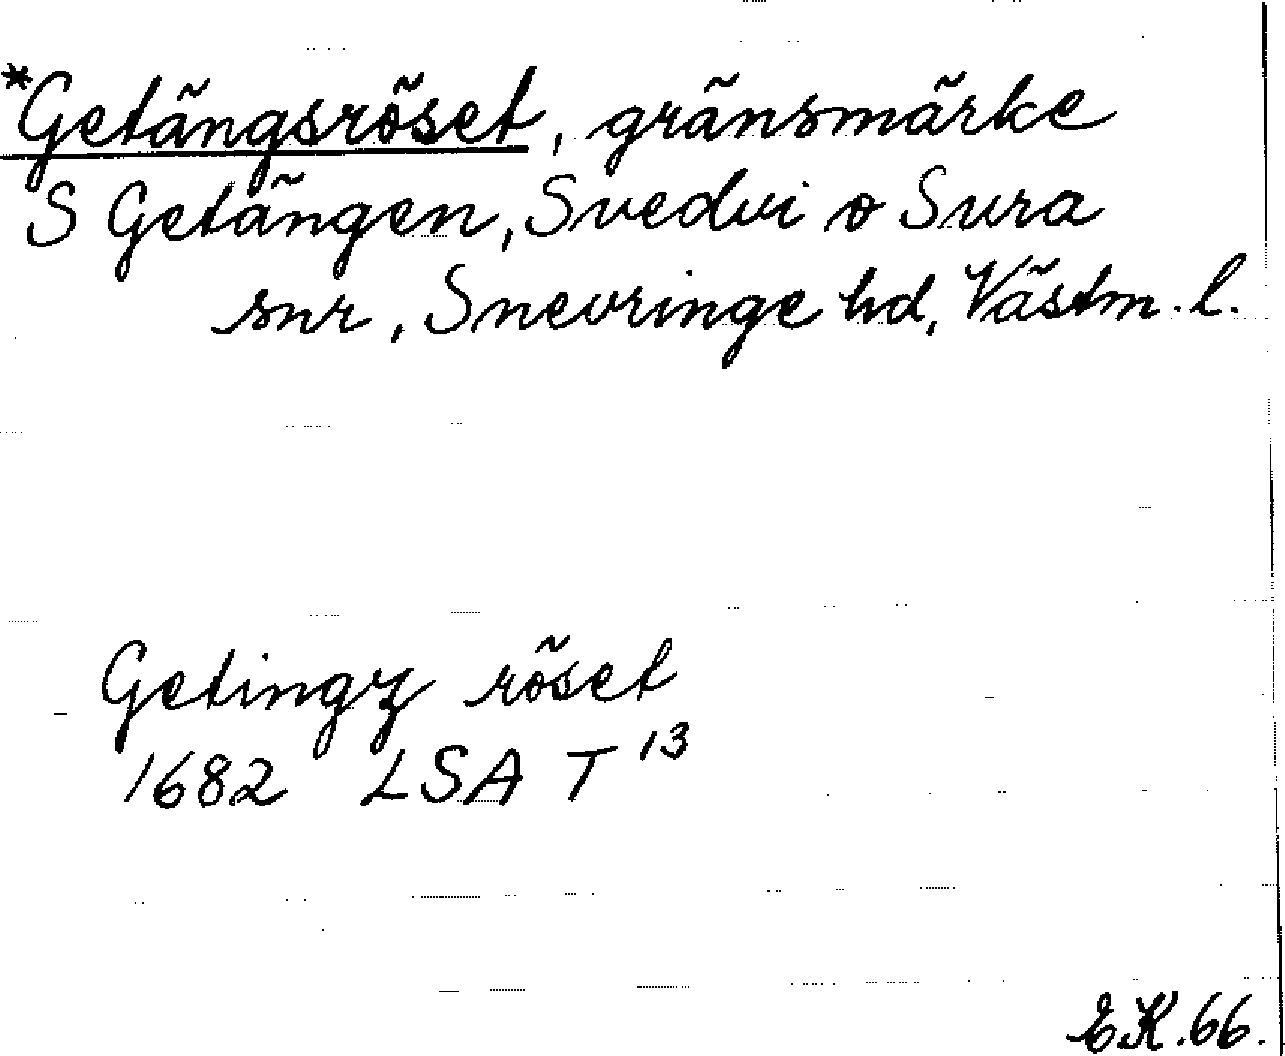 *Getängsröset, gränsmärke
S Getängen, Svedvi o Sura
snr, Snevringe hd, Västm. l.
Getingz röset
1682 LSA T 13
EK. 66.